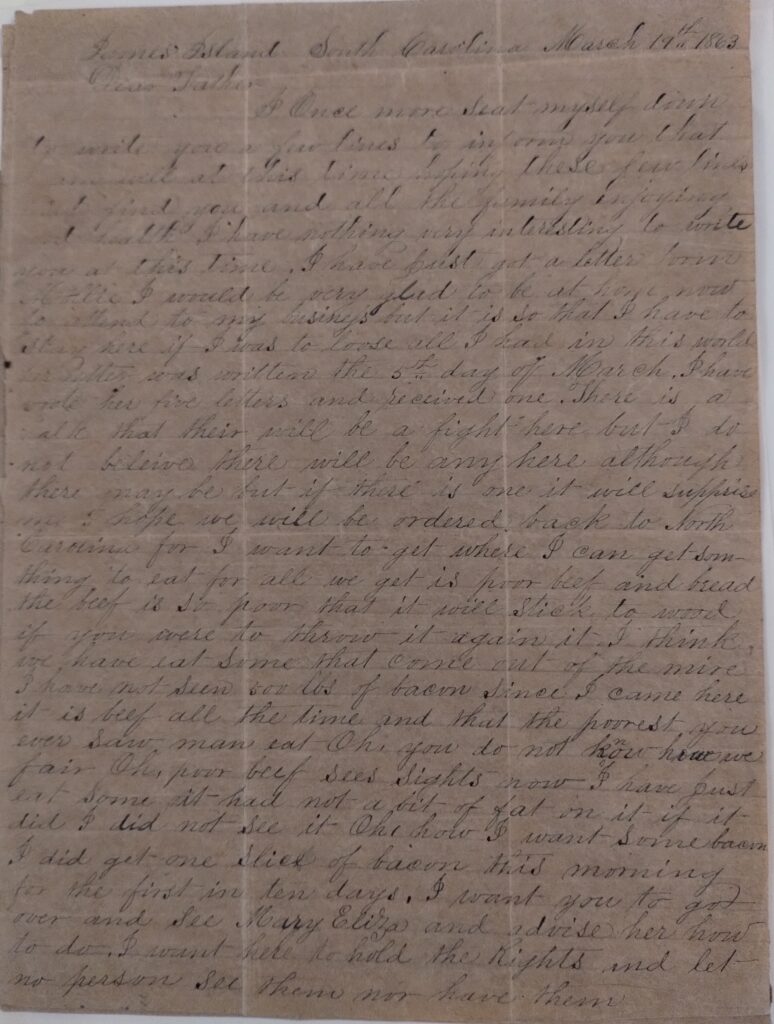 James Island South Carolina March 19th 1863
Dear Father
I Once more seat myself down
to write you a few lines to inform you that
I am well at this time hoping these few lines
may find you and all the family injoying
good health I have nothing very interesting to write
you at this time. I have just got a letter from
Mollie I would be very glad to be at home now
to attend to my busings but it is so that I have to
stay here if I was to loose all I had in this world
her letter was written the 5th day of March. I have
wrote her five letters and received one. There is a
talk that their will be a fight here but I do
not beleive there will be any here although
there may be but if there is one it will supprise
me I hope we will be ordered back to North
Carolina for I want to get where I can get som-
thing to eat for all we get is poor beef and bread
the beef is so poor that it will stick to wood
if you were to throw it again it. I think
we have eat some that come out of the mire
I have not seen 500 lbs of bacon since I came here
it is beef all the time and that the poorest you
ever saw man eat Oh, you do not know how we
fair Oh, poor beef sees sights now I have just
eat some it had not a bit of fat on it if it
did I did not see it Oh, how I want some bacon
I did get one slice of bacon this morning
for the first in ten days. I want you to go
over and see Mary Eliza and advise her how
to do. I want here to hold the Rights and let
no person see them nor have them